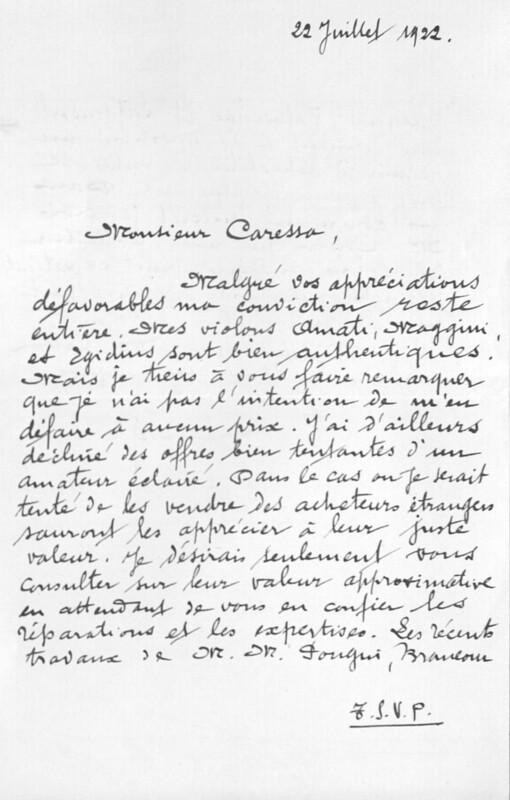 22 Juillet 1922.
Monsieur Caressa,
Malgré vos appréciations
défavorables ma conviction reste
entière. Mes violons Amati, Maggini,
et Egidius sont bien authentiques.
Mais je tiens à vous faire remarquer
que je n'ai pas l'intention de m'en
défaire à aucun prix. J'ai d'ailleurs
décliné des offres bien tentantes d'un
amateur éclairé. Dans le cas ou je serait
tenté de les vendre des acheteurs étrangers
sauront les apprécier à leur juste
valeur. Je désirais seulement vous
consulter sur leur valeur approximative
en attendant de vous en confier les
réparations et les expertises. Les récents
travaux de M. M.
T.S.V.P.